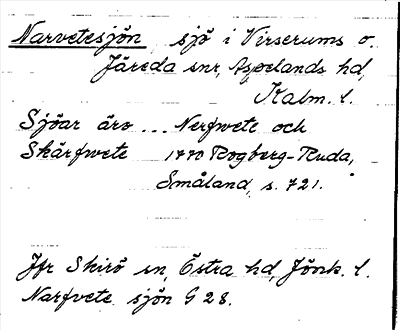 Narvetesjön sjö i Virserums o.
Järeda snr, Aspelands hd,
Kalm. l.
Sjöar äro ... Nerfwete och
Skärfwete 1770 Rogberg-Ruda,
Småland, s. 721.
Jfr Skirö sn, Östra hd, Jönk. l.
Narfvete sjön G 28.